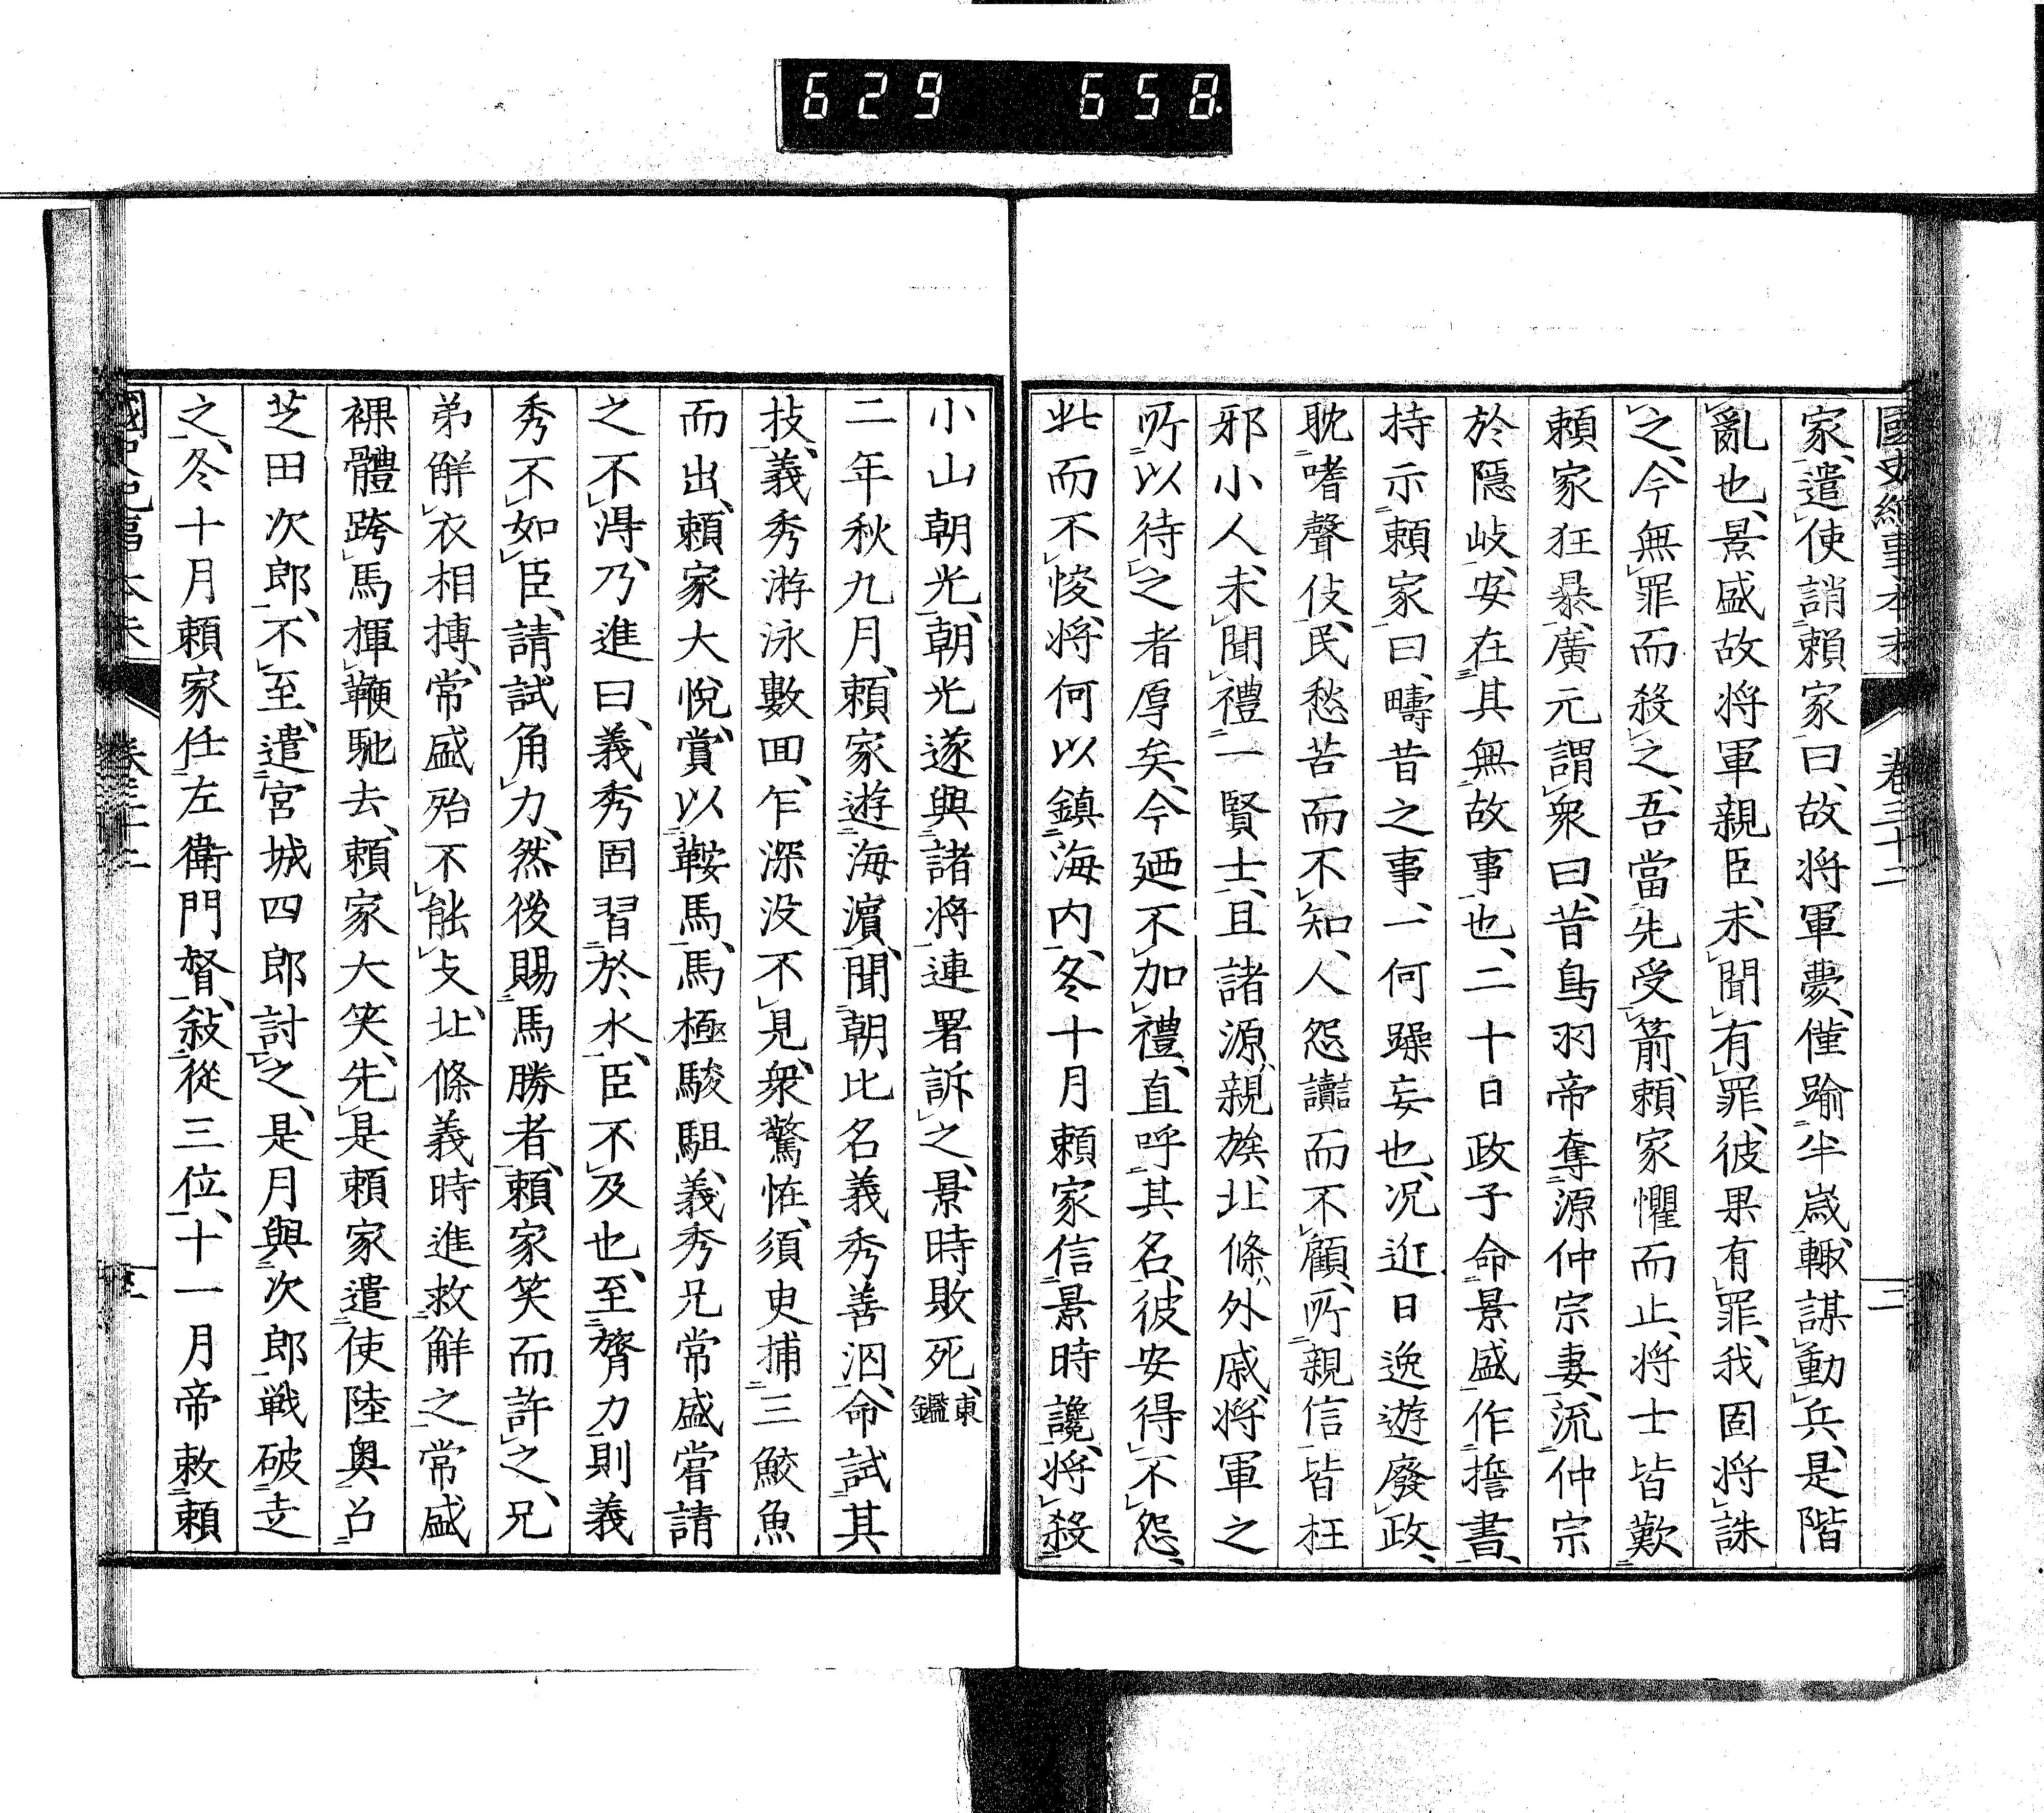 629 658
國史紀事本末 卷三十二 二
家、遣使誚賴家曰、故將軍薨、僅踰半歳、輙謀動兵、是階
亂也、景盛故將軍親臣、未聞有罪、彼果有罪、我固將誅
之、今無罪而殺之、吾當先受箭、賴家懼而止、將士皆歎
賴家狂暴、廣元謂衆曰、昔鳥羽帝奪源仲宗妻、流仲宗
於隱岐、安在其無故事也、二十日政子命景盛作誓書、
持示賴家曰、疇昔之事、一何躁妄也、况近日逸遊廢政、
耽嗜聲伎、民愁苦而不知、人怨讟而不顧、所親信皆枉
邪小人、未聞禮一賢士、且諸源親族、北條外戚、將軍之
所以待之者厚矣、今廼不加禮、直呼其名、彼安得不怨、
此而不悛、將何以鎮海内、冬十月賴家信景時讒、將殺
小山朝光、朝光遂與諸將連署訴之、景時敗死、東鑑
二年秋九月、賴家遊海濵、聞朝比名義秀善泅、命試其
技、義秀游泳數回、乍深没不見、衆驚恠、須臾捕三鮫魚
而出、賴家大悅、賞以鞍馬、馬極駿駔、義秀兄常盛嘗請
之不得、乃進曰、義秀固習於水、臣不及也、至膂力則義
秀不如臣、請試角力、然後賜馬勝者、賴家笑而許之、兄
弟解衣相搏、常盛殆不能支、北條義時進救解之、常盛
裸體跨馬揮鞭馳去、賴家大笑、先是賴家遣使陸奥召
芝田次郎、不至、遣宮城四郎討之、是月與次郎戰破走
之、冬十月賴家任左衛門督、敍從三位、十一月帝敕賴
國史紀事本末 卷三十二 三